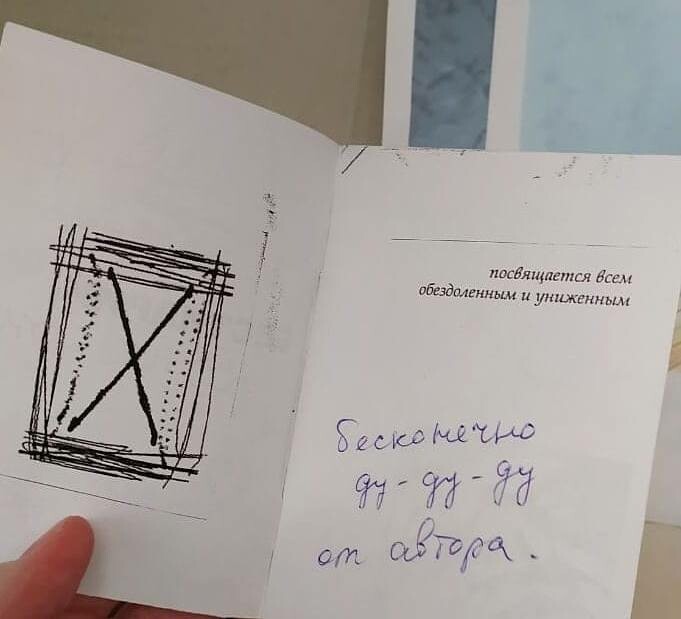 посвящается всем
обездоленным и униженным
бесконечно
ду - ду - ду
от автора.